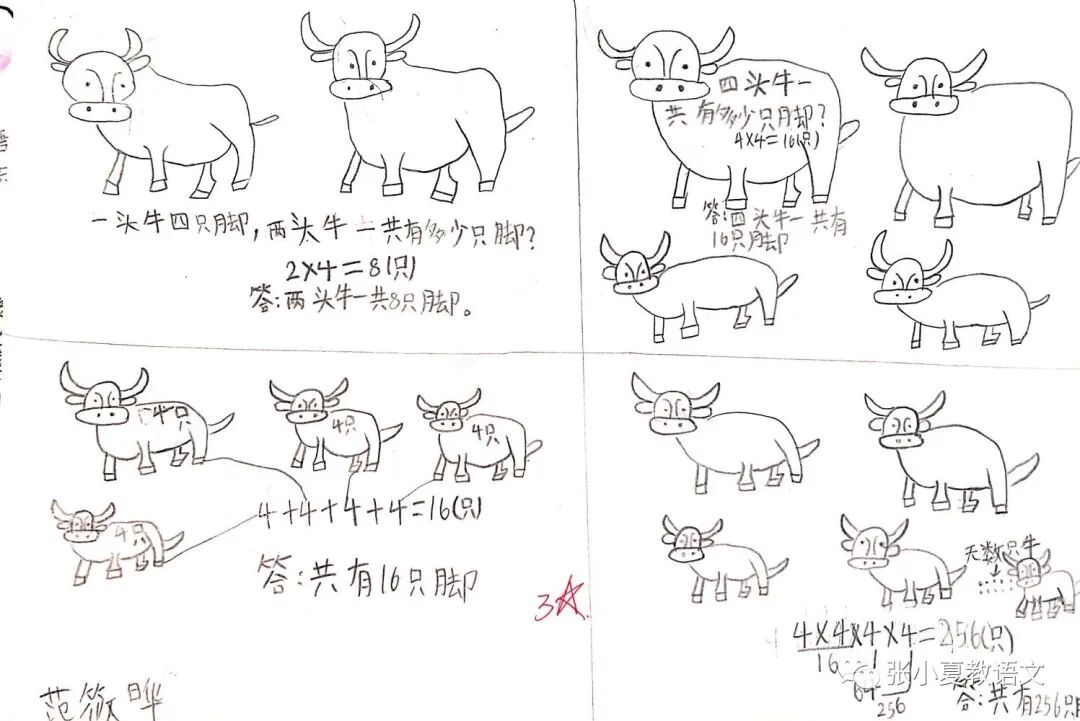 一头牛四只脚,两头牛一共有多少只脚?
2×4=8(只)
答:两头牛一共8只脚。
四头牛一
共有多少只脚?
4×4=16(只)
答:四头牛一共有
16只脚
4只
4只
4只
4只
4+4+4+4=16(只)
答:共有16只脚
3☆
无数只牛
4×4×4×4=256(只)
16
64
256
答:共有256只
张小夏教语文